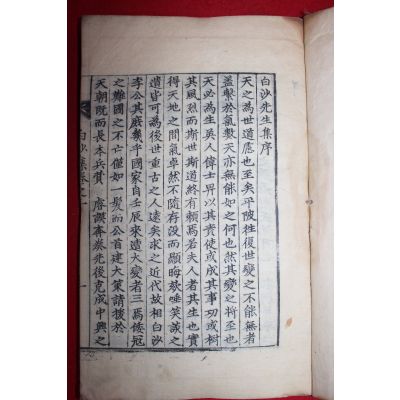 白沙先生集序
天之為世道慮也至矣平陂往復世變之不能無者
盖繫於氣數天亦無能如之何也然其變之將至也
天必為生異人偉士畀以其責使或成其事功或樹
其風烈而斯世斯道終有賴焉若夫人者其生也實
得天地之間氣卓然不隨存沒而顯晦欬唾笑談之
遺皆可為後世重古之人遠矣求之近代故相白沙
李公其庶幾乎國家自壬辰來遭大變者三焉倭冦
之難國之不亡僅如一髮而公首建大策請援於
天朝既而長本兵賛 唐謨奔奏先後克成中興之
白沙集卷之一